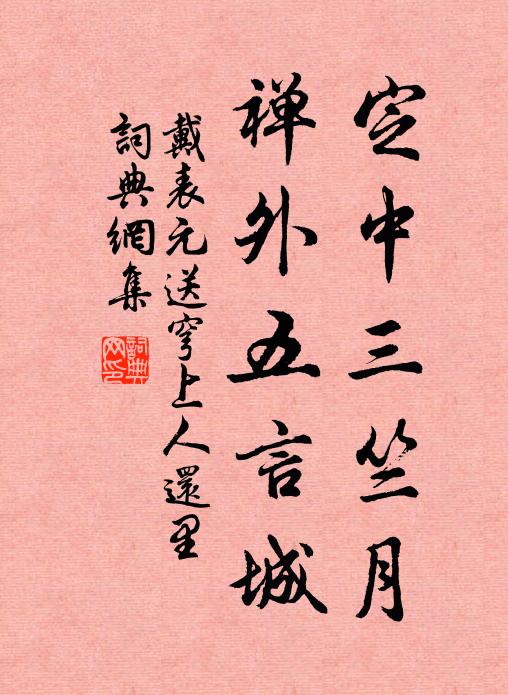 定中三竺月
禅外五言城
戴表元送穹上人還里
詞典網集
詞典網印